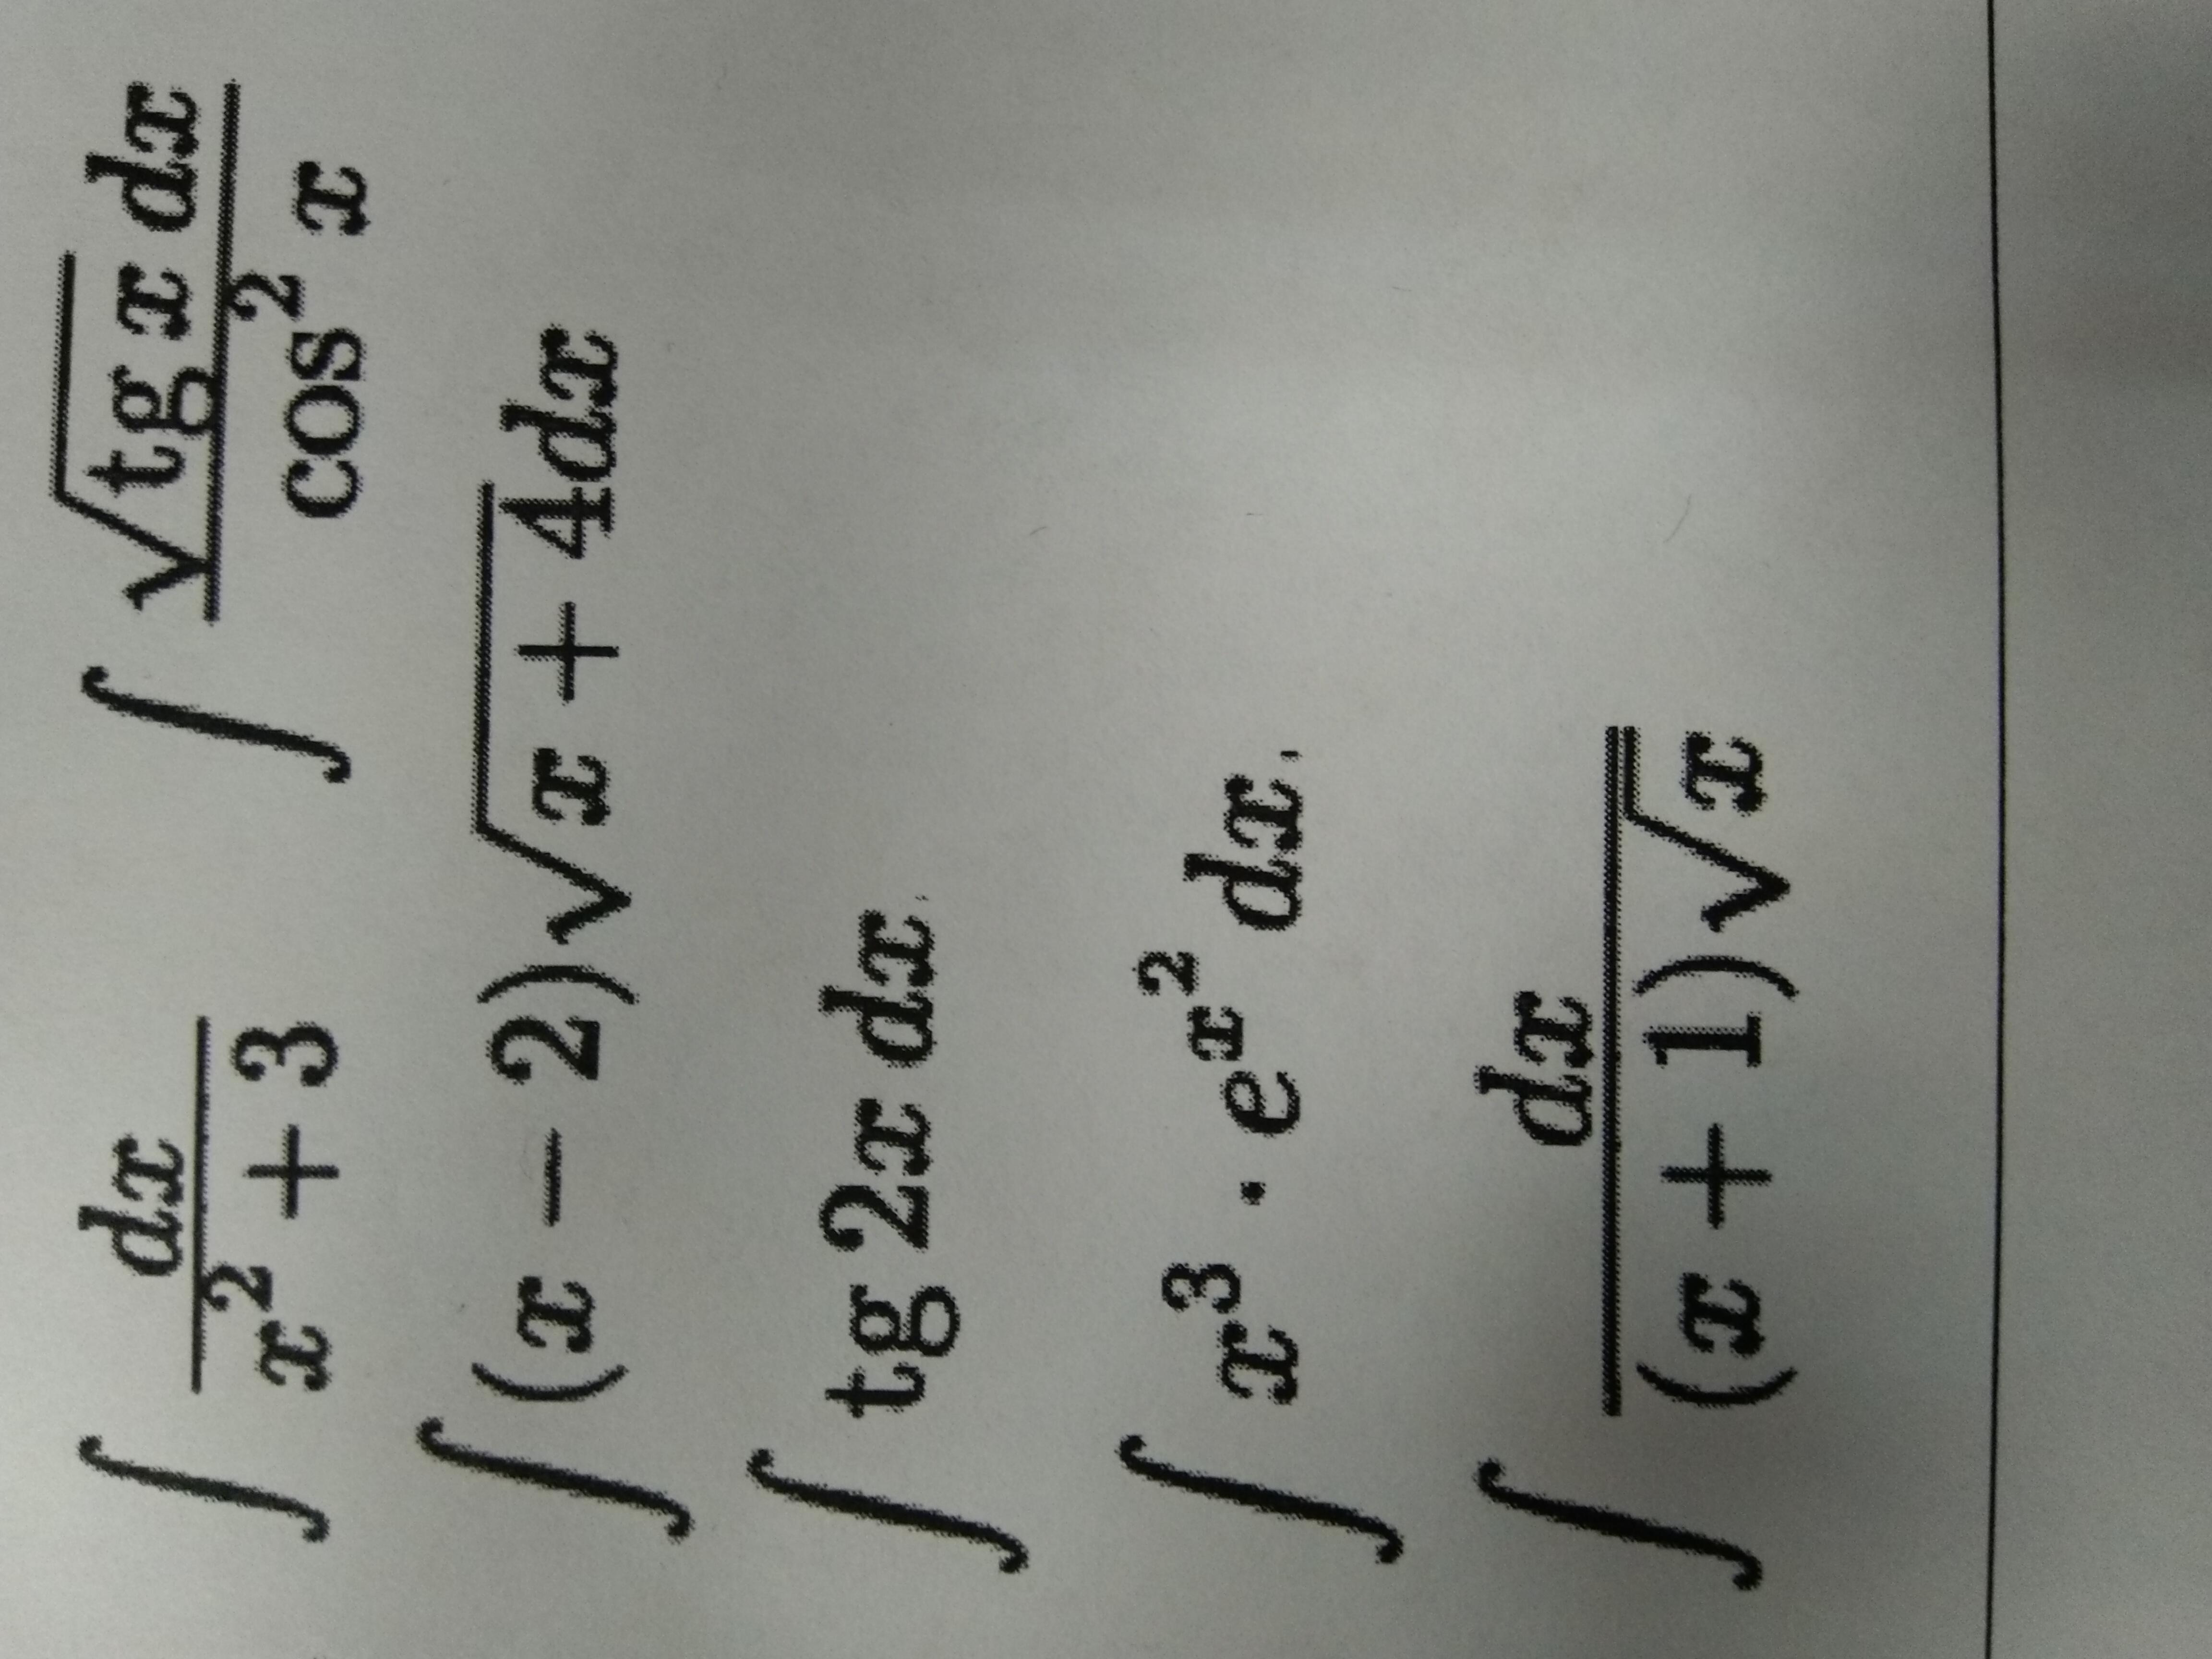 ∫ dx / (x² + 3) ∫ √(tg x) dx / cos² x
∫ (x − 2)√(x + 4) dx
∫ tg 2x dx.
∫ x³ · e^(x²) dx.
∫ dx / ((x + 1)√x)